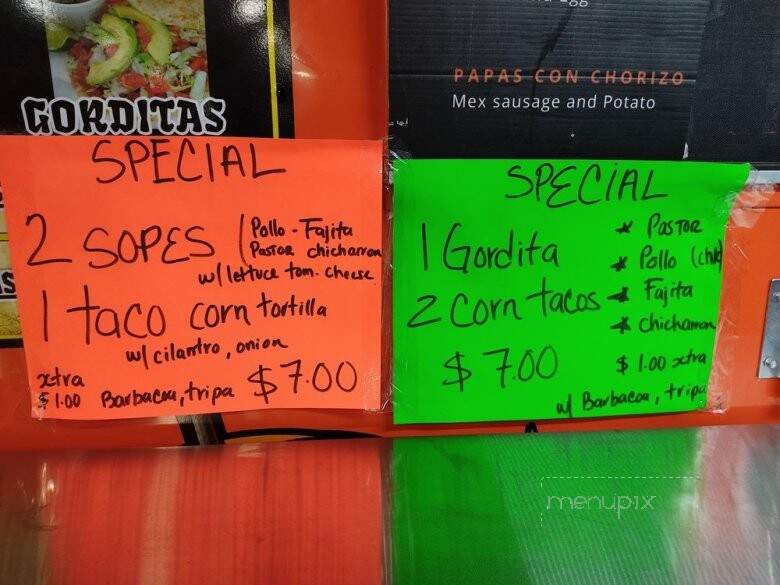 GORDITAS
PAPAS CON CHORIZO
Mex sausage and Potato
SPECIAL
2 SOPES
Pollo - Fajita
Pastor chicharron
w/ lettuce tom. cheese
1 taco corn tortilla
w/ cilantro, onion
xtra
$1.00 Barbacoa, tripa $7.00
SPECIAL
1 Gordita
2 corn tacos
$7.00
* Pastor
* Pollo
* Fajita
* chicharron
$1.00 xtra
w/ Barbacoa, tripa
menupix